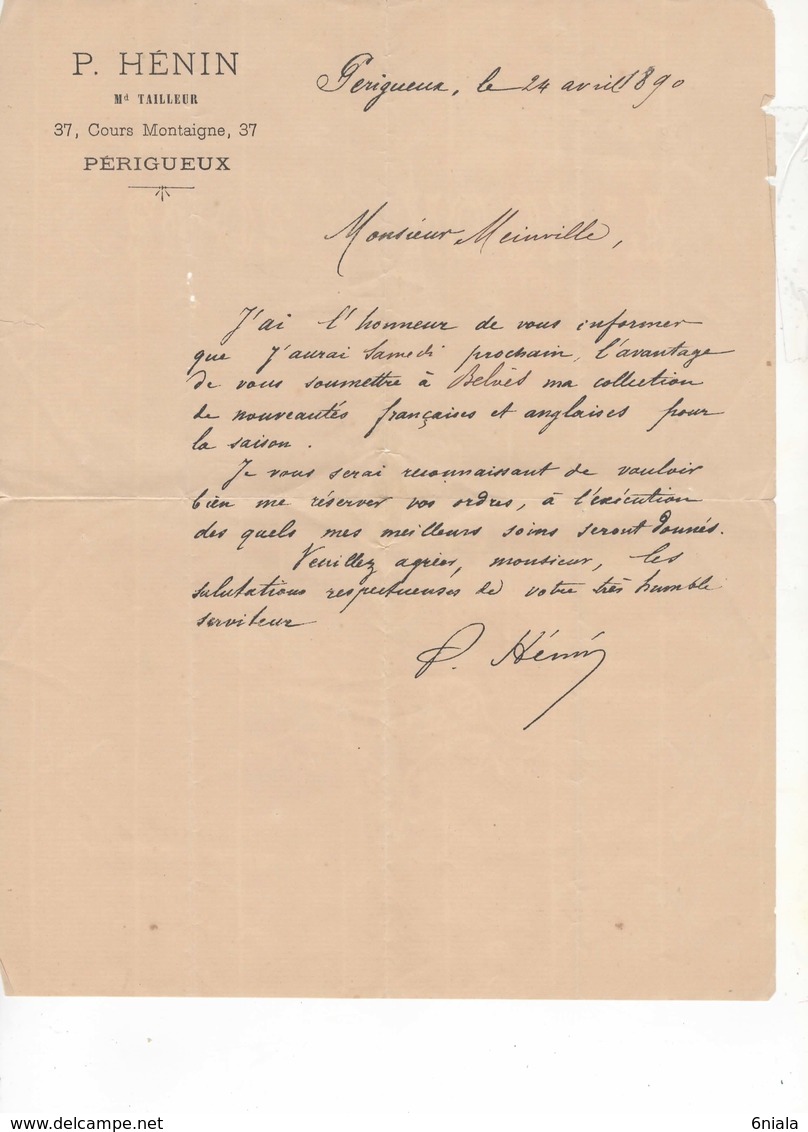 P. HÉNIN
Md TAILLEUR
37, Cours Montaigne, 37
PÉRIGUEUX
Perigueux, le 24 avril 1890
Monsieur Meinville,
J'ai l'honneur de vous informer
que J'aurai Samedi prochain, l'avantage
de vous soumettre à Belvès ma collection
de nouveautés françaises et anglaises pour
la saison.
Je vous serai reconnaissant de vouloir
bien me réserver vos ordres, à l'exécution
des quels mes meilleurs soins seront donnés.
Veuillez agréer, monsieur, les
salutations respectueuses de votre très humble
serviteur
P. Hénin
6niala